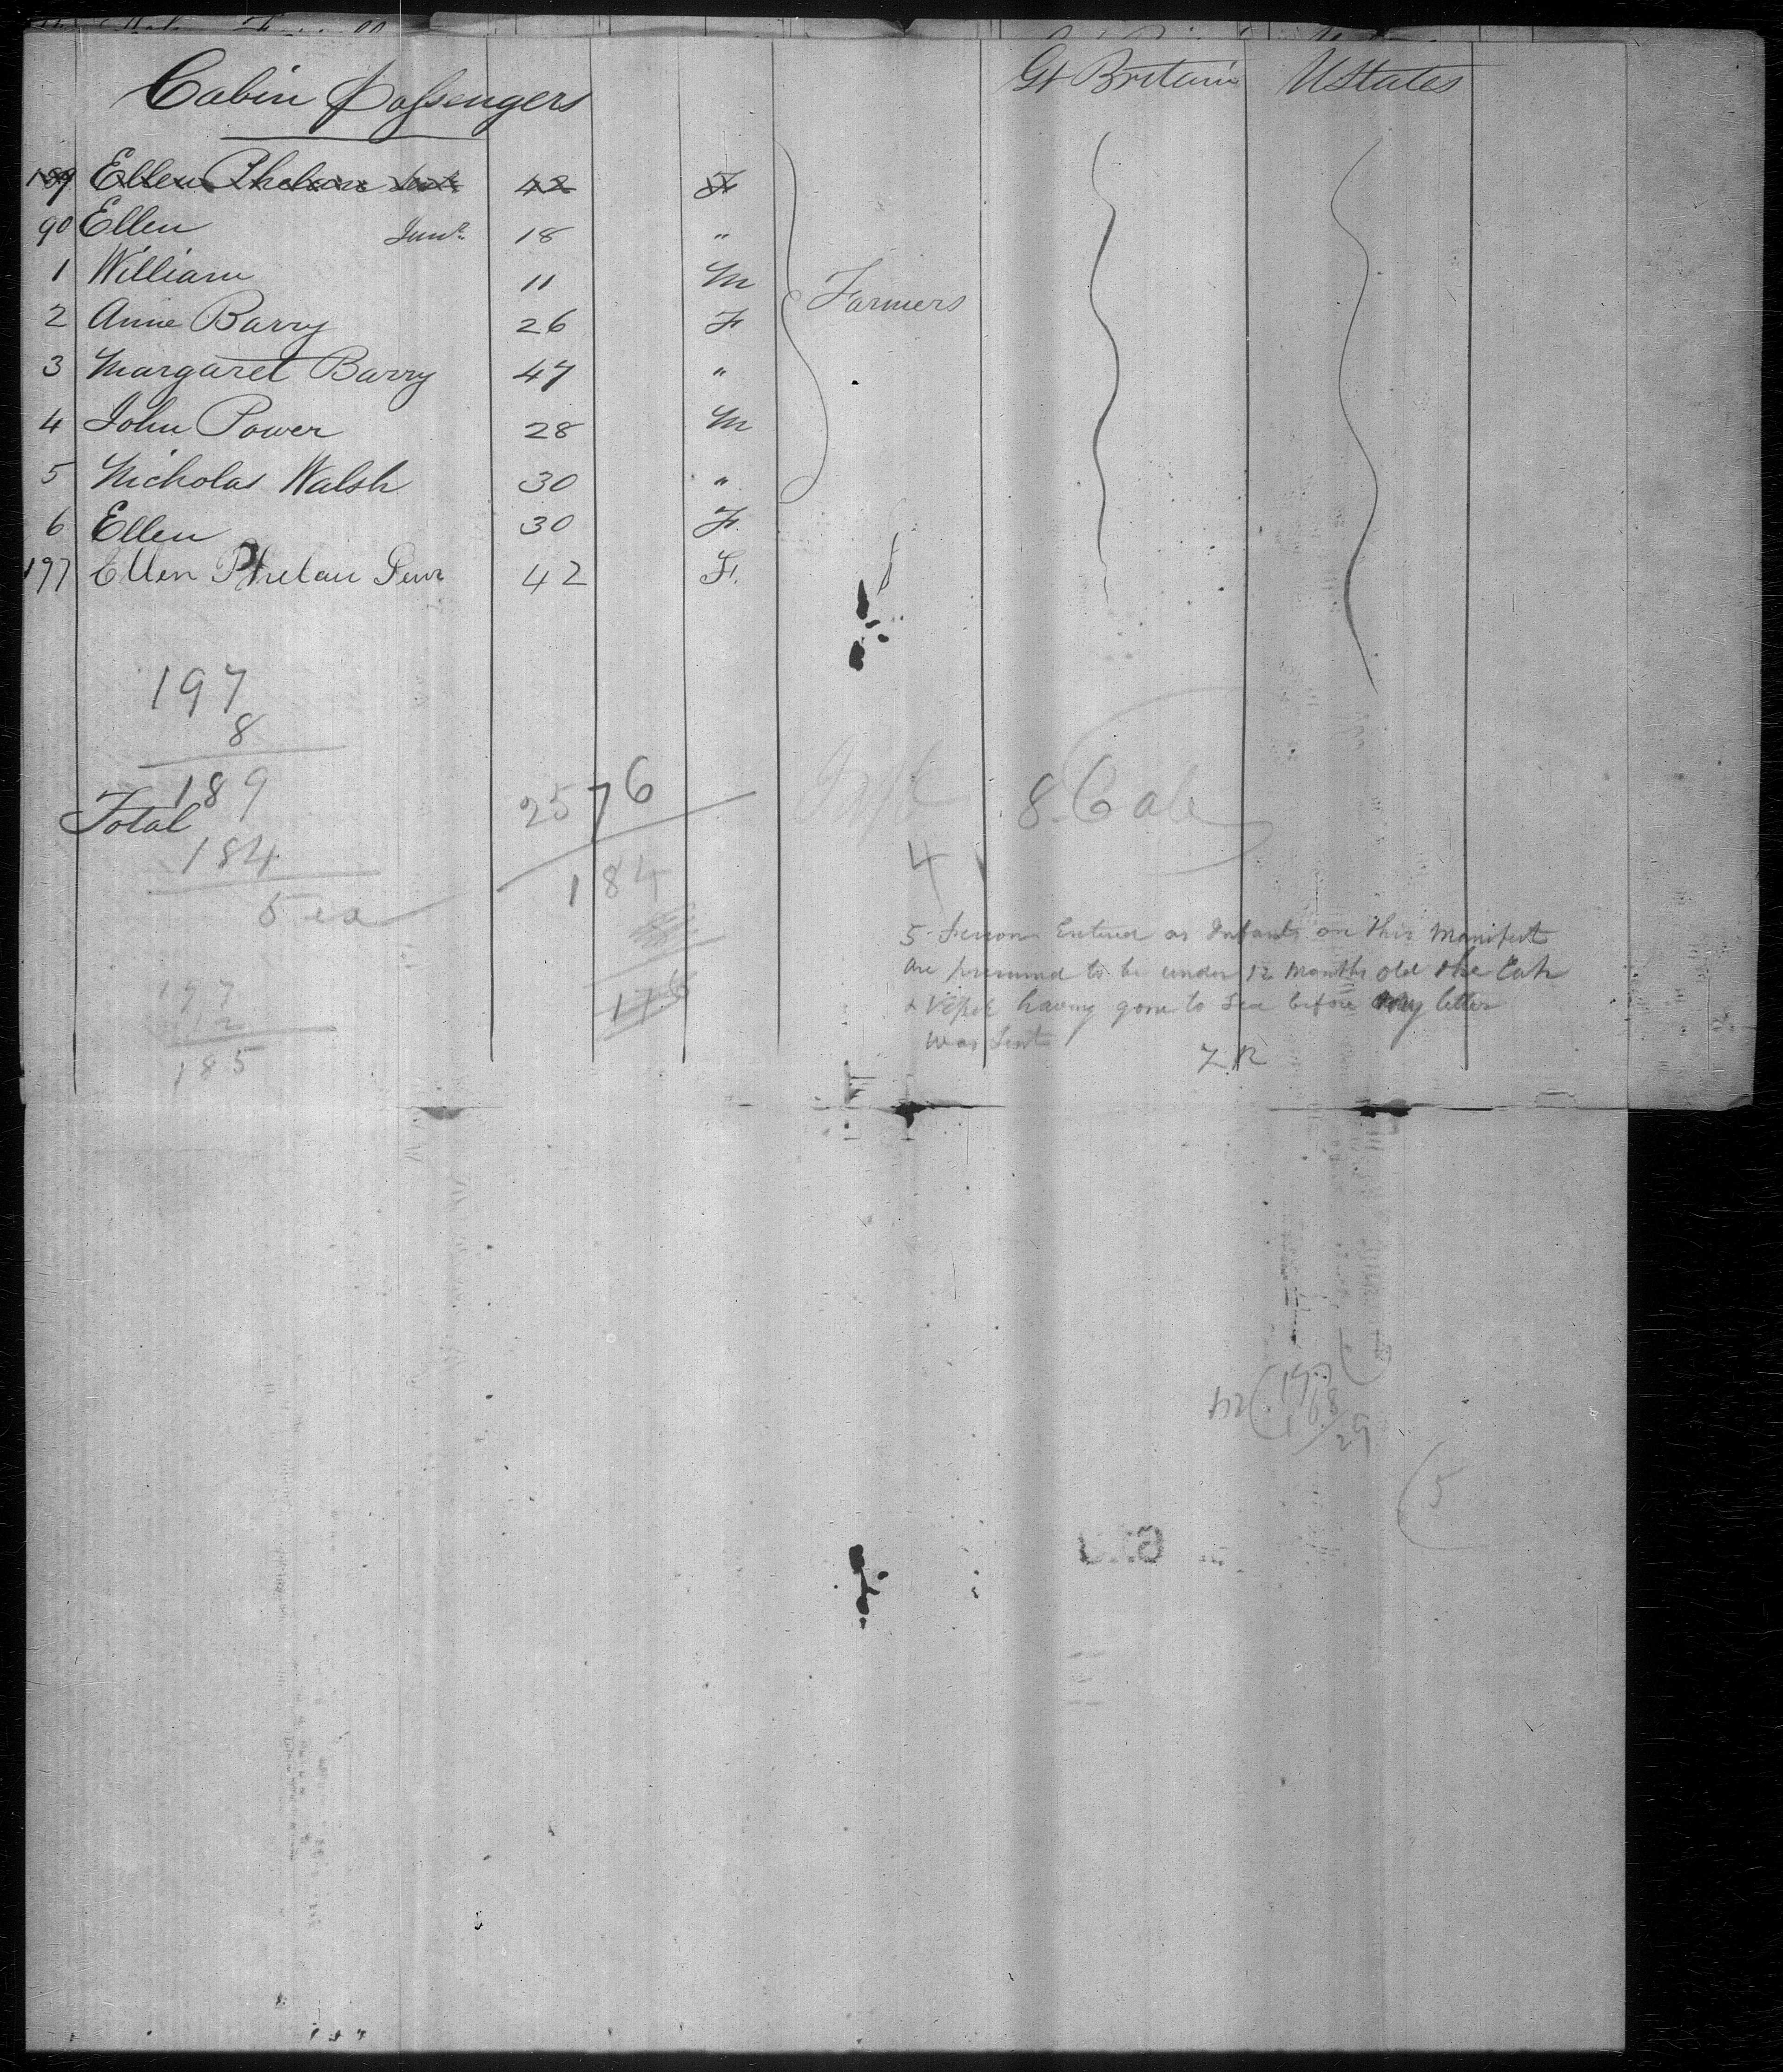 Gt Britain UStates
Cabin Passengers
189 Ellen Phelan Senr 42 F
90 Ellen Junr 18 "
1 William 11 M
Farmers
2 Anne Barry 26 F
3 Margaret Barry 47 "
4 John Power 28 M
5 Nicholas Walsh 30 "
6 Ellen 30 F.
197 Ellen Phelan Senr 42 F.
197
8
189 2576 8 Cab
Total
184 184 4
5
5 Entered as Infants on this Manifest
are presumed to be under 12 months old the
& Vessel having gone to Sea before my letter
was sent
197
12
185
197
168
29
5